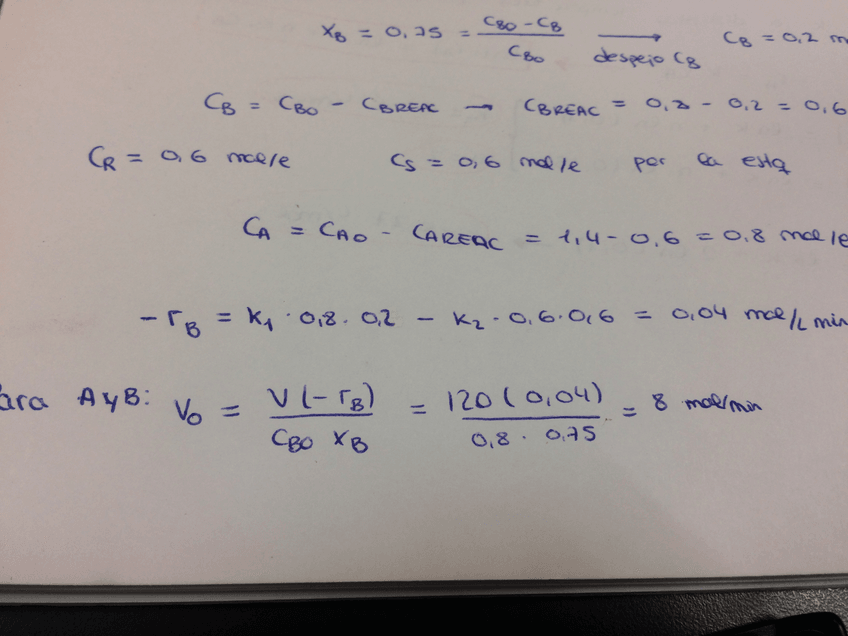 X_B = 0,75 = (C_BO - C_B) / C_BO → despejo C_B C_B = 0,2 m
C_B = C_BO - C_BREAC → C_BREAC = 0,8 - 0,2 = 0,6
C_R = 0,6 mol/l C_S = 0,6 mol/l por la estq
C_A = C_AO - C_AREAC = 1,4 - 0,6 = 0,8 mol/l
- r_B = K_1 · 0,8 · 0,2 - K_2 · 0,6 · 0,6 = 0,04 mol/L min
ara A y B: V_O = V(-r_B) / (C_BO X_B) = 120(0,04) / (0,8 · 0,75) = 8 mol/min